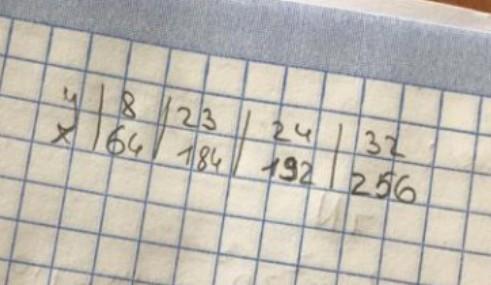 y | 8 | 23 | 24 | 32
x | 64 | 184 | 192 | 256